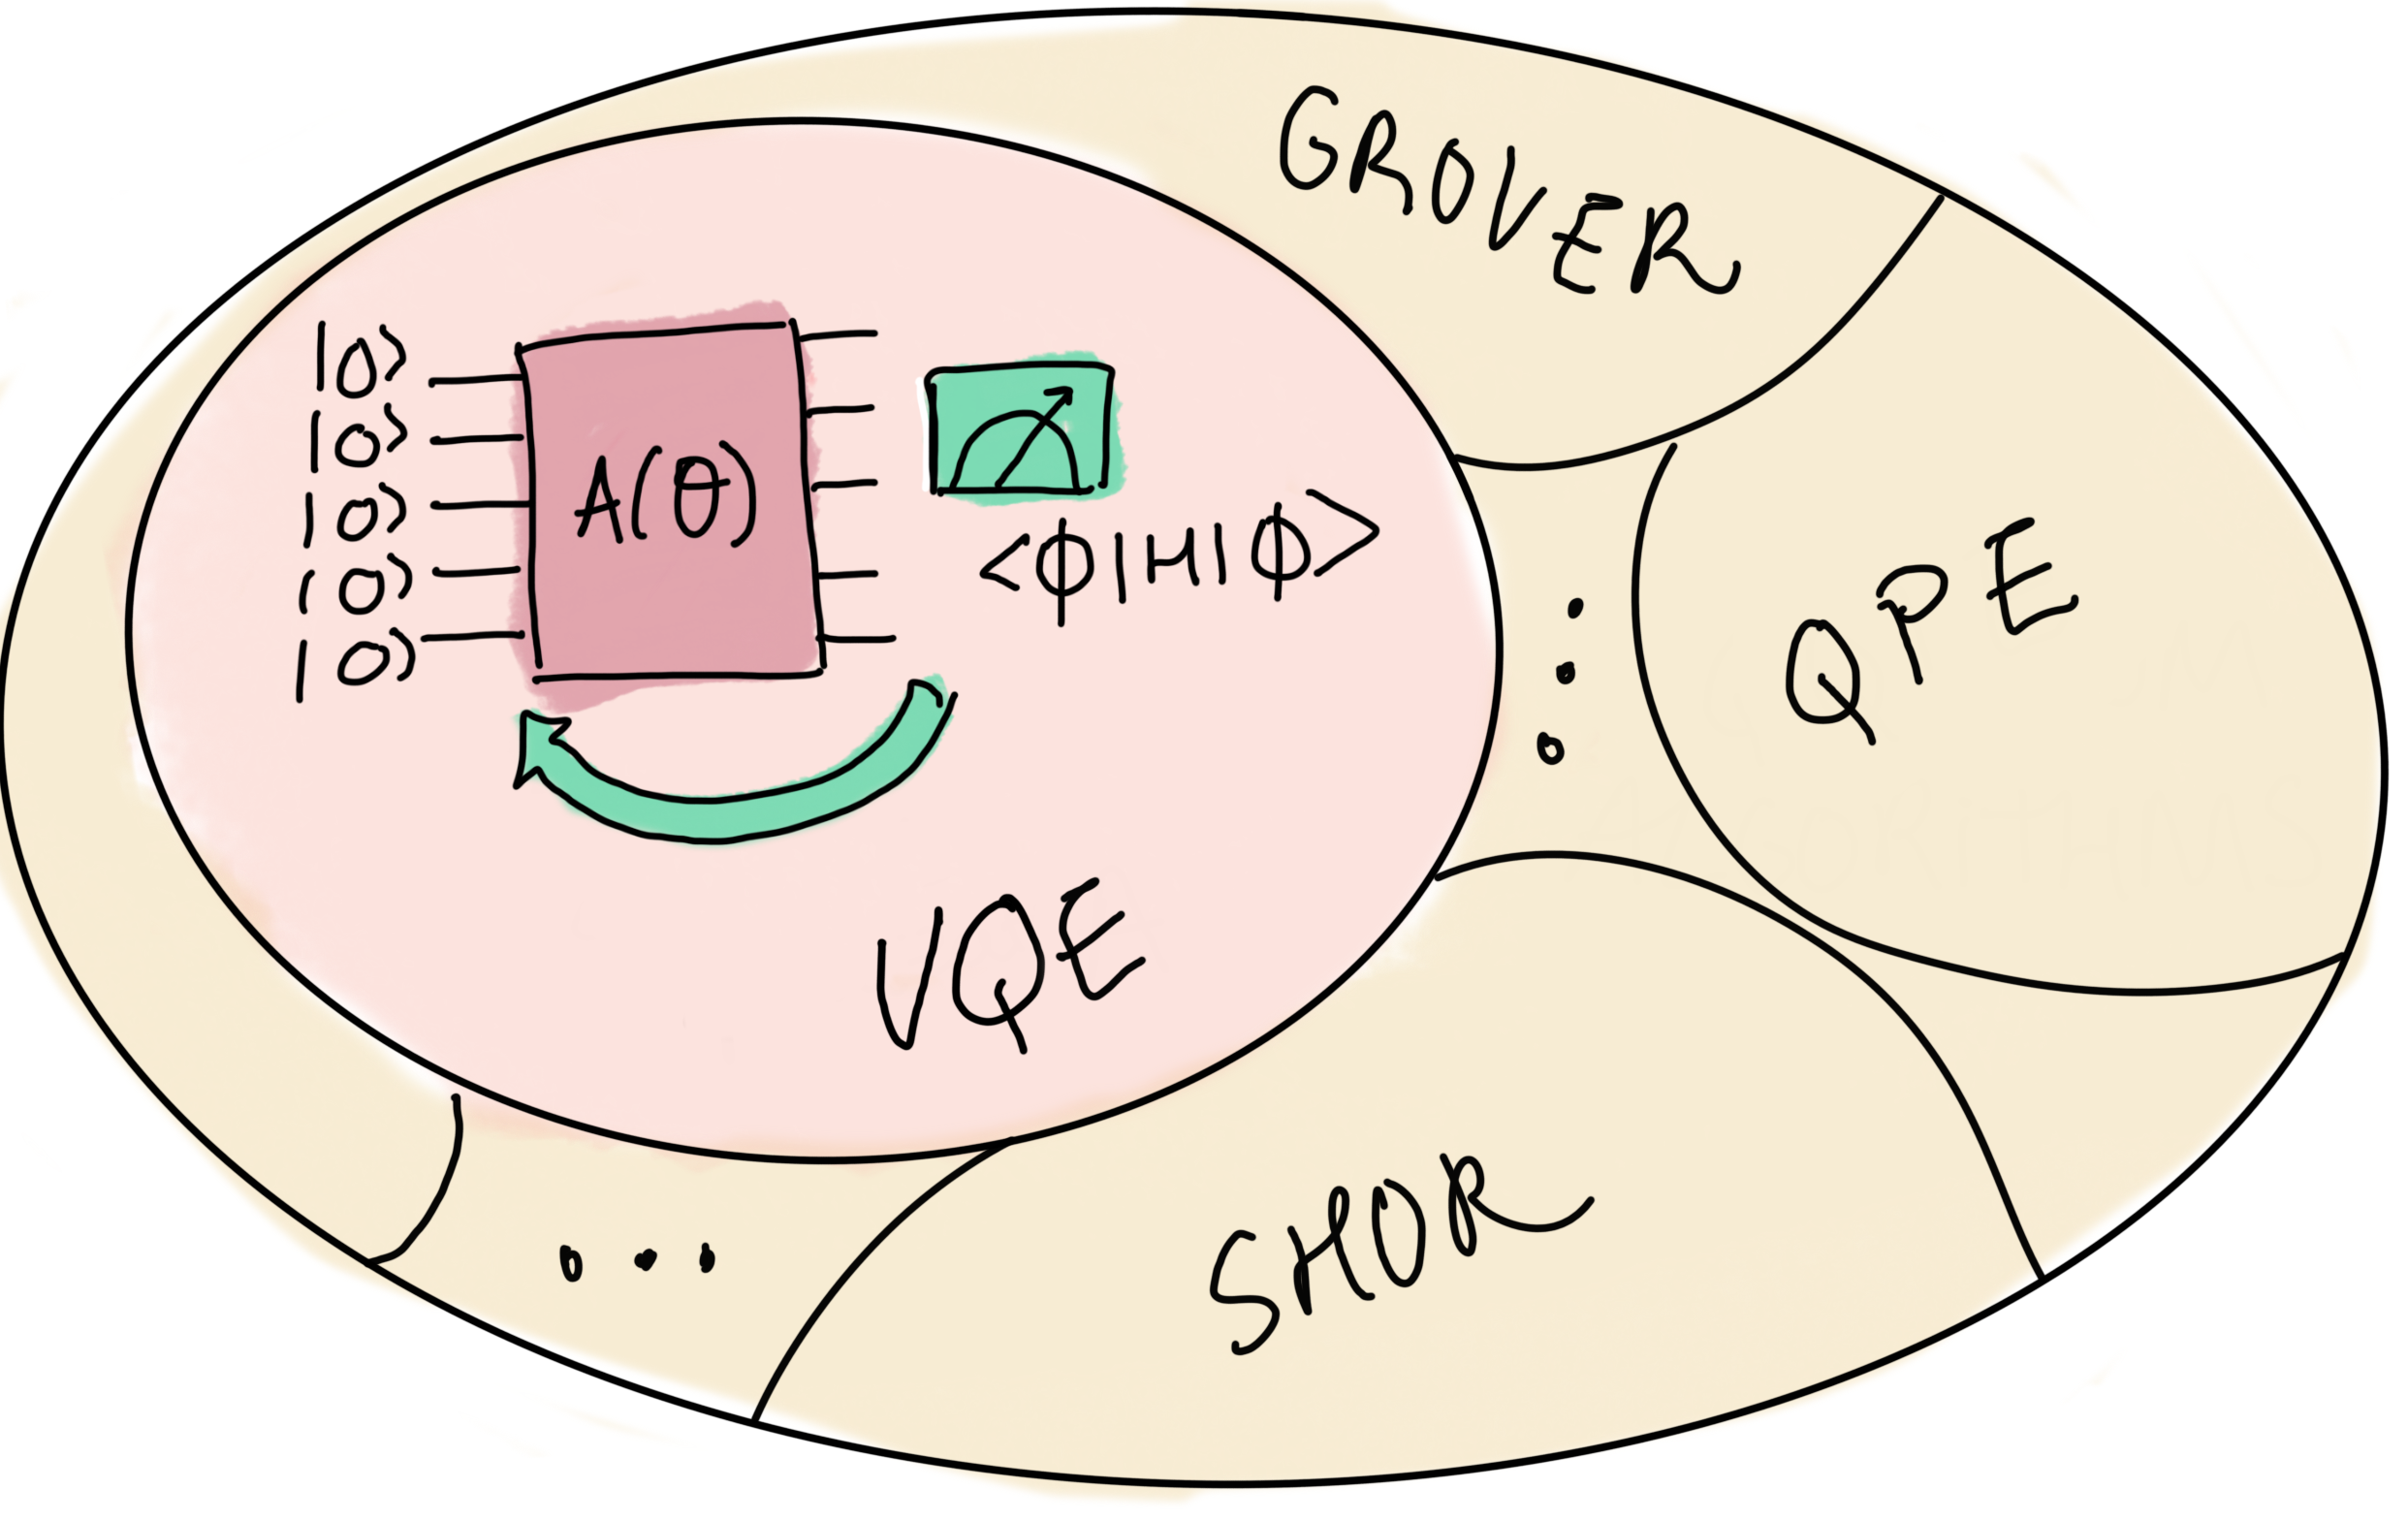 GROVER
|0⟩
|0⟩
|0⟩
|0⟩
|0⟩
A(θ)
<ϕ|H|ϕ>
QPE
VQE
SHOR